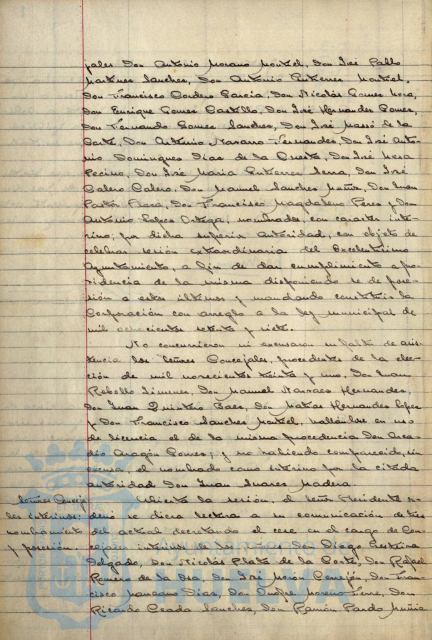 pales Don Antonio Morano Montiel, Don José Pablo
Martínez Sanchez, Don Antonio Gutierrez Montiel,
Don Francisco Cordero Garcia, Don Nicolás Gomez Mora,
Don Enrique Gomez Castillo, Don José Hernandez Gomez,
Don Fernando Gomez Sanchez, Don José Marsó de la
Corte, Don Antonio Navarro Fernandez, Don José Anto-
nio Dominguez Diaz de la Cuesta, Don José Mesa
Pecino, Don José Maria Gutierrez Serra, Don José
Calero Calero, Don Manuel Sanchez Muñiz, Don Juan
Pastor Roca, Don Francisco Magdaleno Perez y Don
Antonio Lopez Ortega, nombrados, con caracter inte-
rino, por dicha superior autoridad, con objeto de
celebrar sesión extraordinaria del Excelentísimo
Ayuntamiento, a fin de dar cumplimiento a pro-
videncia de la misma disponiendo se dé pose-
sión a estos últimos y mandando constituir la
Corporación con arreglo a la ley municipal de
mil ochocientos setenta y siete.
No concurrieron ni excusaron su falta de asis-
tencia los Señores Concejales, procedentes de la elec-
ción de mil novecientos treinta y uno, Don Juan
Rebollo Jimenez, Don Manuel Narvaez Hernandez,
Don Juan Quintero Baez, Don Matias Hernandez Lopez
y Don Francisco Sanchez Montiel, hallándose en uso
de licencia el de la misma procedencia Don Arca-
dio Aragón Gomez; y no habiendo comparecido, sin
excusa, el nombrado como interino por la citada
autoridad Don Juan Suarez Madera.
Señores Conceja-
les interinos:
nombramiento
y posesión.
Abierta la sesión, el Señor Presidente or-
denó se diera lectura a su comunicación de fecha
del actual decretando el cese en el cargo de Con-
cejales interinos de los Señores Don Diego
Delgado, Don Nicolás Plata de la Corte, Don Rafael
Romero de la Osa, Don José Moron Cerejón, Don Fran-
cisco Manzano Diaz, Don Andrés Moreno Perez, Don
Ricardo Ceada Sanchez, Don Ramón Pardo Muñiz